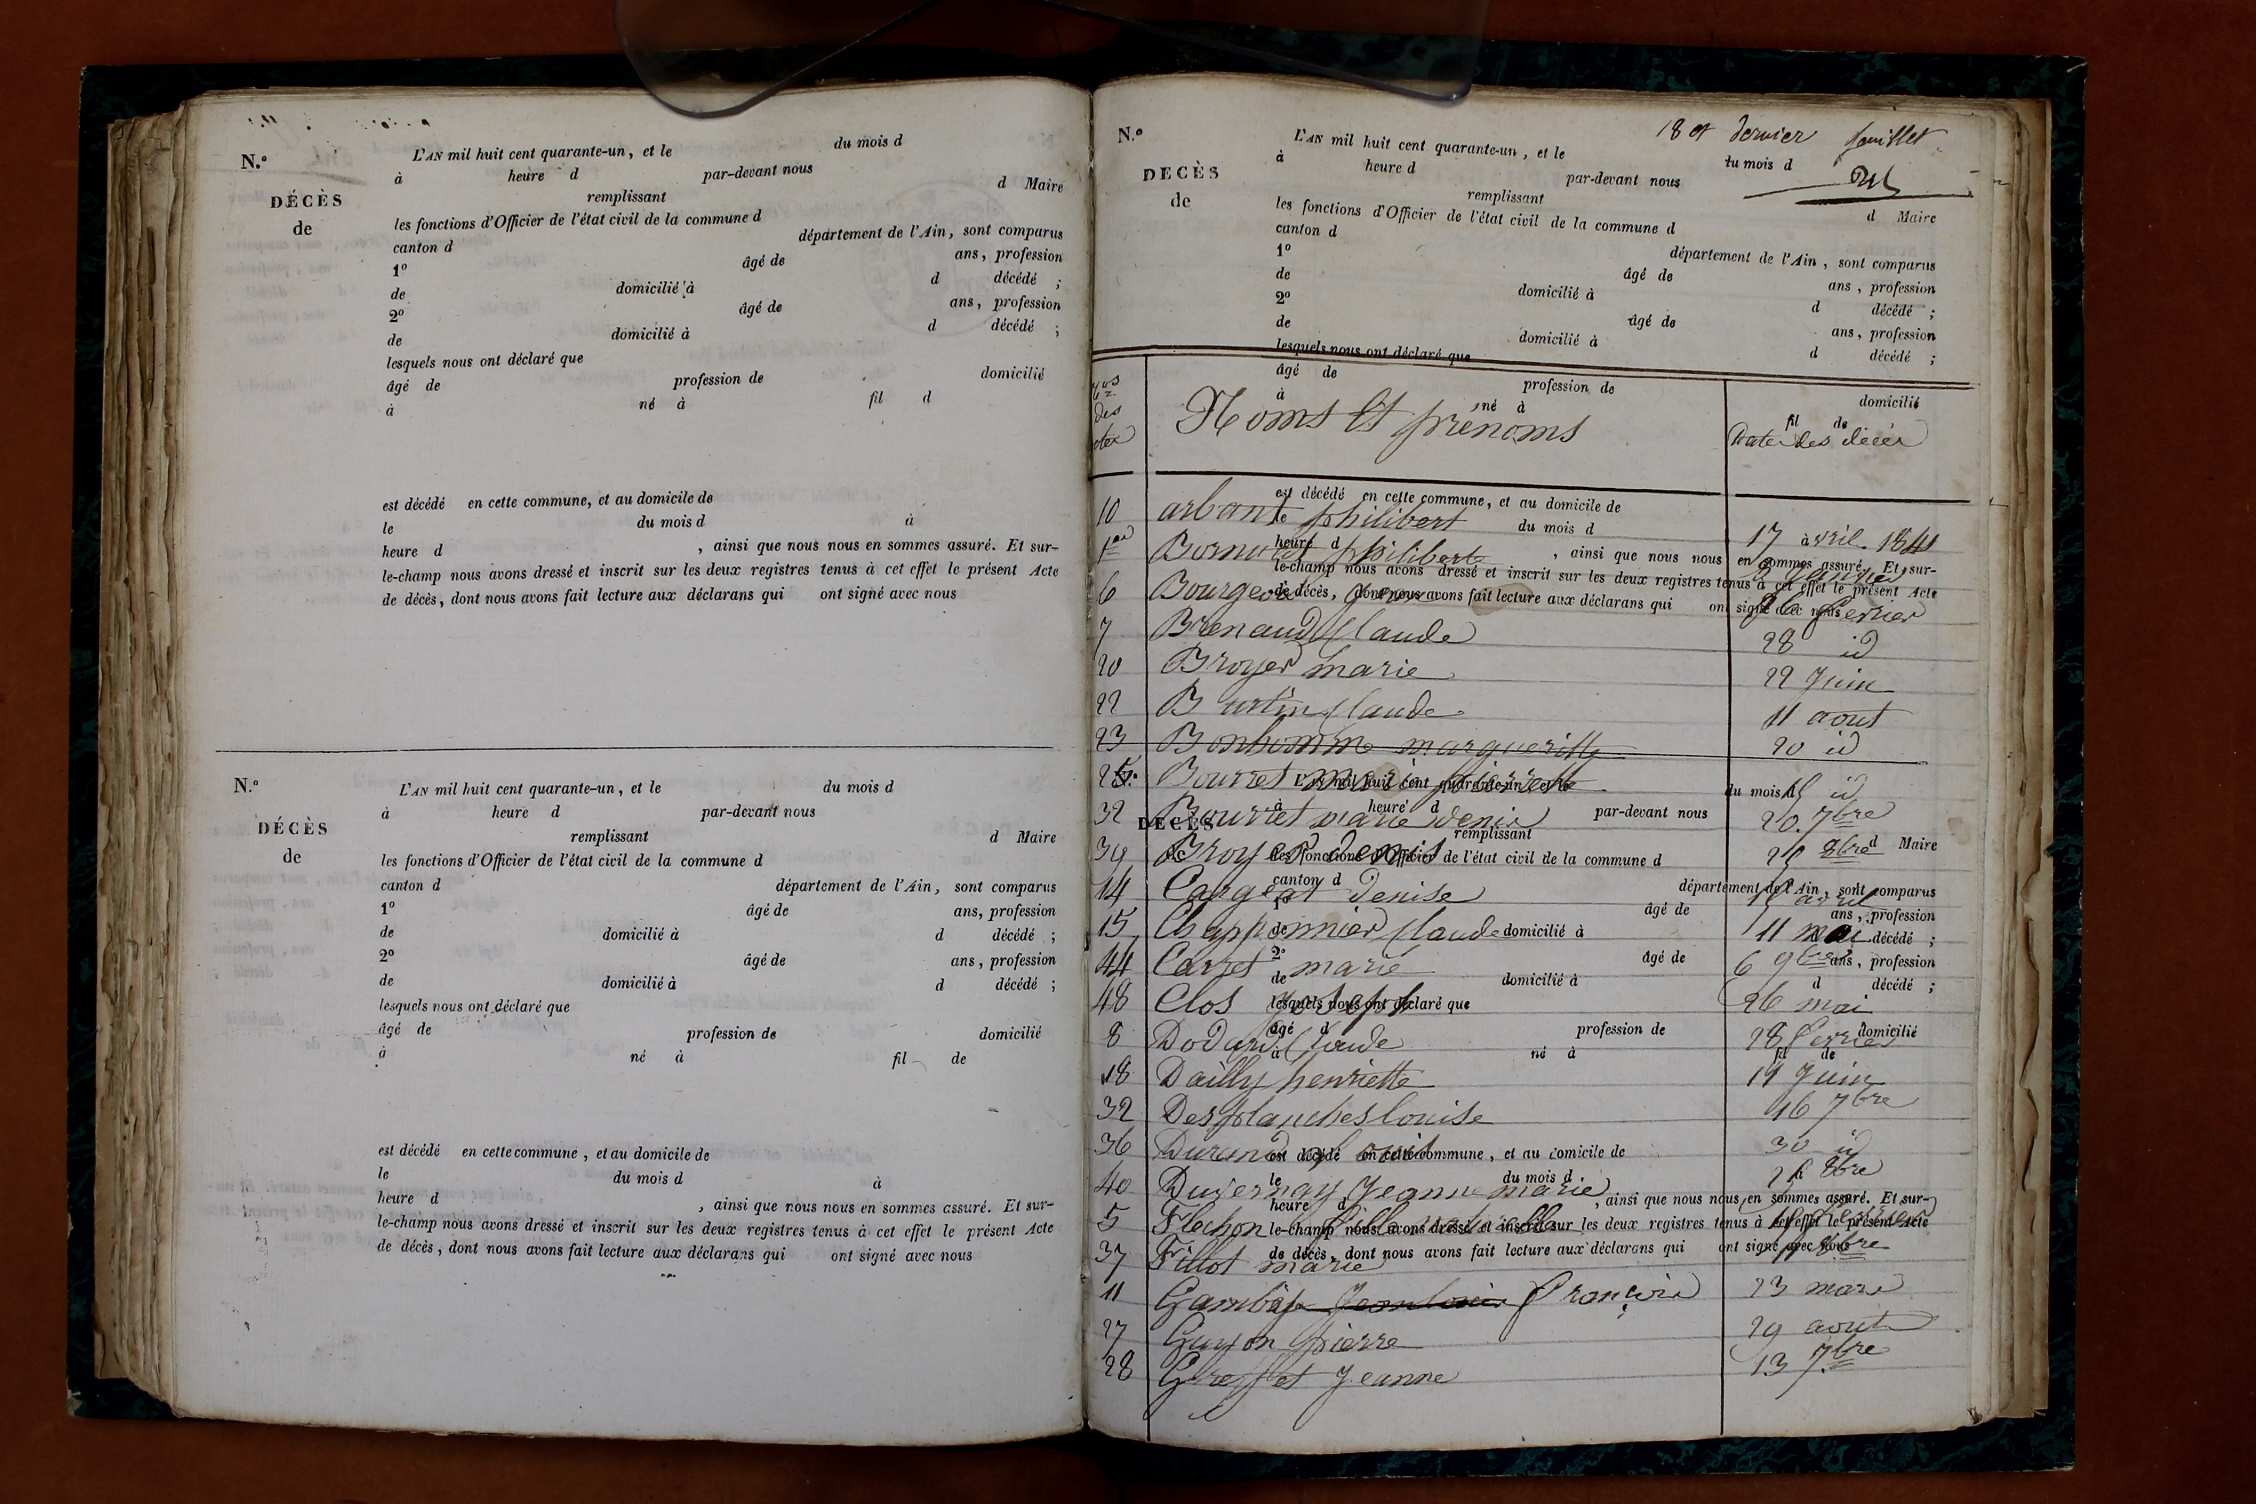 N.º
DÉCÈS
de
L'AN mil huit cent quarante-un, et le du mois d
à heure d par-devant nous
remplissant d Maire
les fonctions d'Officier de l'état civil de la commune d
canton d département de l'Ain, sont comparus
1º âgé de ans, profession
de domicilié à d décédé ;
2º âgé de ans, profession
de domicilié à d décédé ;
lesquels nous ont déclaré que
âgé de profession de domicilié
à né à fil d
est décédé en cette commune, et au domicile de
le du mois d à
heure d , ainsi que nous nous en sommes assuré. Et sur-
le-champ nous avons dressé et inscrit sur les deux registres tenus à cet effet le présent Acte
de décès, dont nous avons fait lecture aux déclarans qui ont signé avec nous
N.º
DÉCÈS
de
L'AN mil huit cent quarante-un, et le du mois d
à heure d par-devant nous
remplissant d Maire
les fonctions d'Officier de l'état civil de la commune d
canton d département de l'Ain, sont comparus
1º âgé de ans, profession
de domicilié à d décédé ;
2º âgé de ans, profession
de domicilié à d décédé ;
lesquels nous ont déclaré que
âgé de profession de domicilié
à né à fil de
est décédé en cette commune, et au domicile de
le du mois d à
heure d , ainsi que nous nous en sommes assuré. Et sur-
le-champ nous avons dressé et inscrit sur les deux registres tenus à cet effet le présent Acte
de décès, dont nous avons fait lecture aux déclarans qui ont signé avec nous
18 et dernier feuillet
N.º
DECÈS
de
L'AN mil huit cent quarante-un, et le du mois d
à heure d par-devant nous
remplissant d Maire
les fonctions d'Officier de l'état civil de la commune d
canton d département de l'Ain, sont comparus
1º âgé de ans, profession
de domicilié à d décédé ;
2º âgé de ans, profession
de domicilié à d décédé ;
lesquels nous ont déclaré que
âgé de profession de domicilié
à né à fil de
nos des actes Noms et prénoms Date des décès
est décédé en cette commune, et au domicile de
le du mois d
heure d , ainsi que nous nous en sommes assuré. Et sur-
le-champ nous avons dressé et inscrit sur les deux registres tenus à cet effet le présent Acte
de décès, dont nous avons fait lecture aux déclarans qui ont signé avec nous
10 arbant philibert 17 avril 1841
1er philibert janvier
6 Bourgeois fevrier
7 Brenaud Claude 28 id
20 Broyer marie 22 Juin
22 Burtin Claude 11 aout
23 Bonhomme margueritte 20 id
25 Bourret id
32 Bourret marie denise 20 7bre
39 Broyer denis 8bre
14 Cargeat Denise avril
15 Chapponnier Claude 11 mai
44 Carret marie 6 9bre
48 Clos Joseph 26 mai
8 Dodard Claude 28 fevrier
18 Dailly henriette 11 Juin
32 Desplanches louise 16 7bre
36 Durand louis 30 id
40 Duvernay Jeanne marie 8bre
5 Flechon
37 Fillot marie 8bre
11 François 23 mars
27 Guyon pierre 29 aout
28 Greffet Jeanne 13 7bre
L'AN mil huit cent quarante-un, et le du mois d
à heure d par-devant nous
DECÈS
remplissant d Maire
les fonctions d'Officier de l'état civil de la commune d
canton d département de l'Ain, sont comparus
1º âgé de ans, profession
de domicilié à décédé ;
2º âgé de ans, profession
de domicilié à d décédé ;
lesquels nous ont déclaré que
âgé d profession de domicilié
à né à fil de
est décédé en cette commune, et au domicile de
le du mois d
heure d , ainsi que nous nous en sommes assuré. Et sur-
le-champ nous avons dressé et inscrit sur les deux registres tenus à cet effet le présent Acte
de décès, dont nous avons fait lecture aux déclarans qui ont signé avec nous